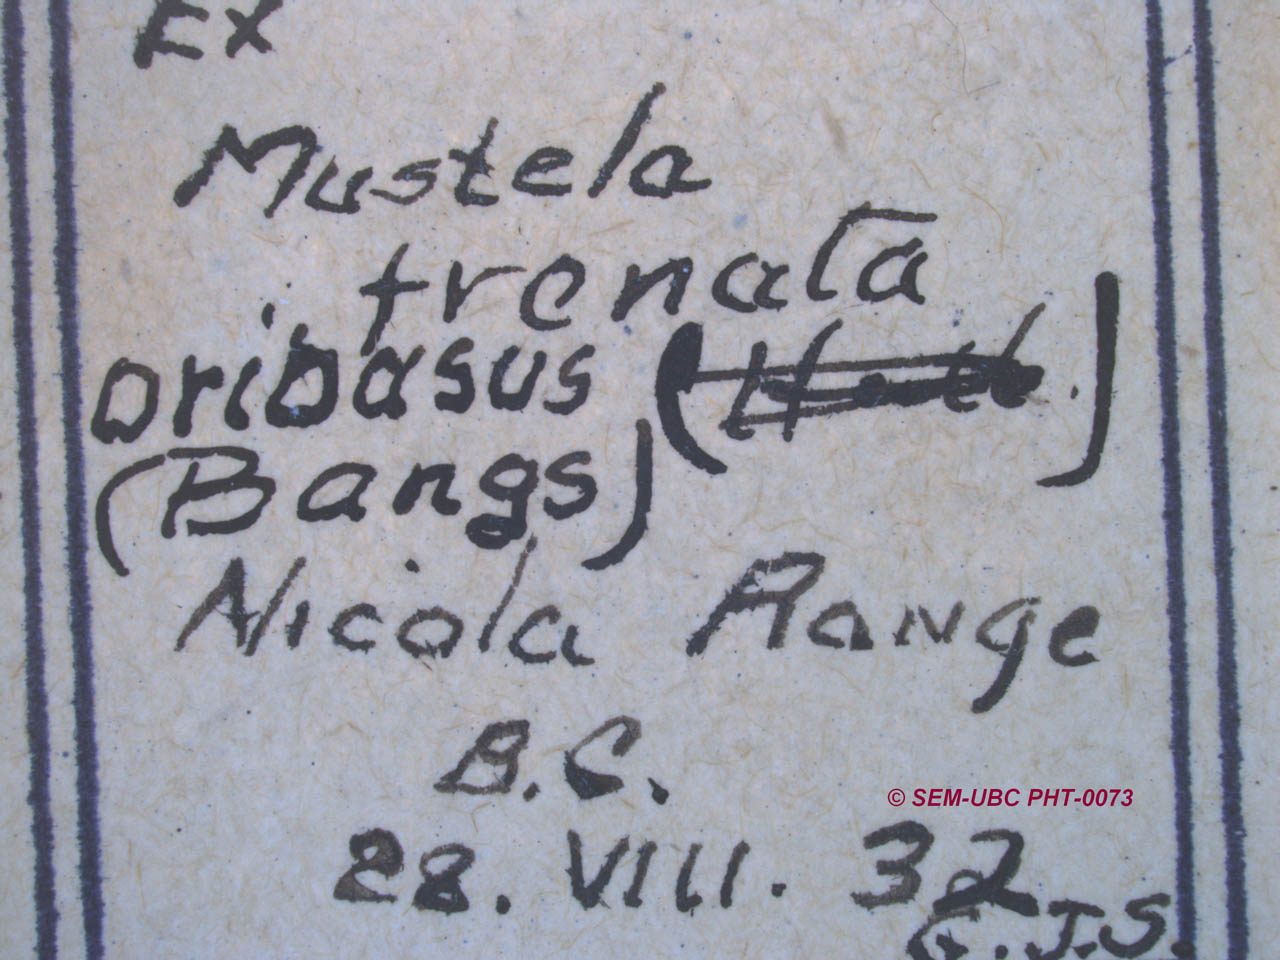 Ex
Mustela
frenata
oribasus (
.)
(Bangs)
Nicola Range
B.C.
© SEM-UBC PHT-0073
28. VIII. 32
G.J.S.